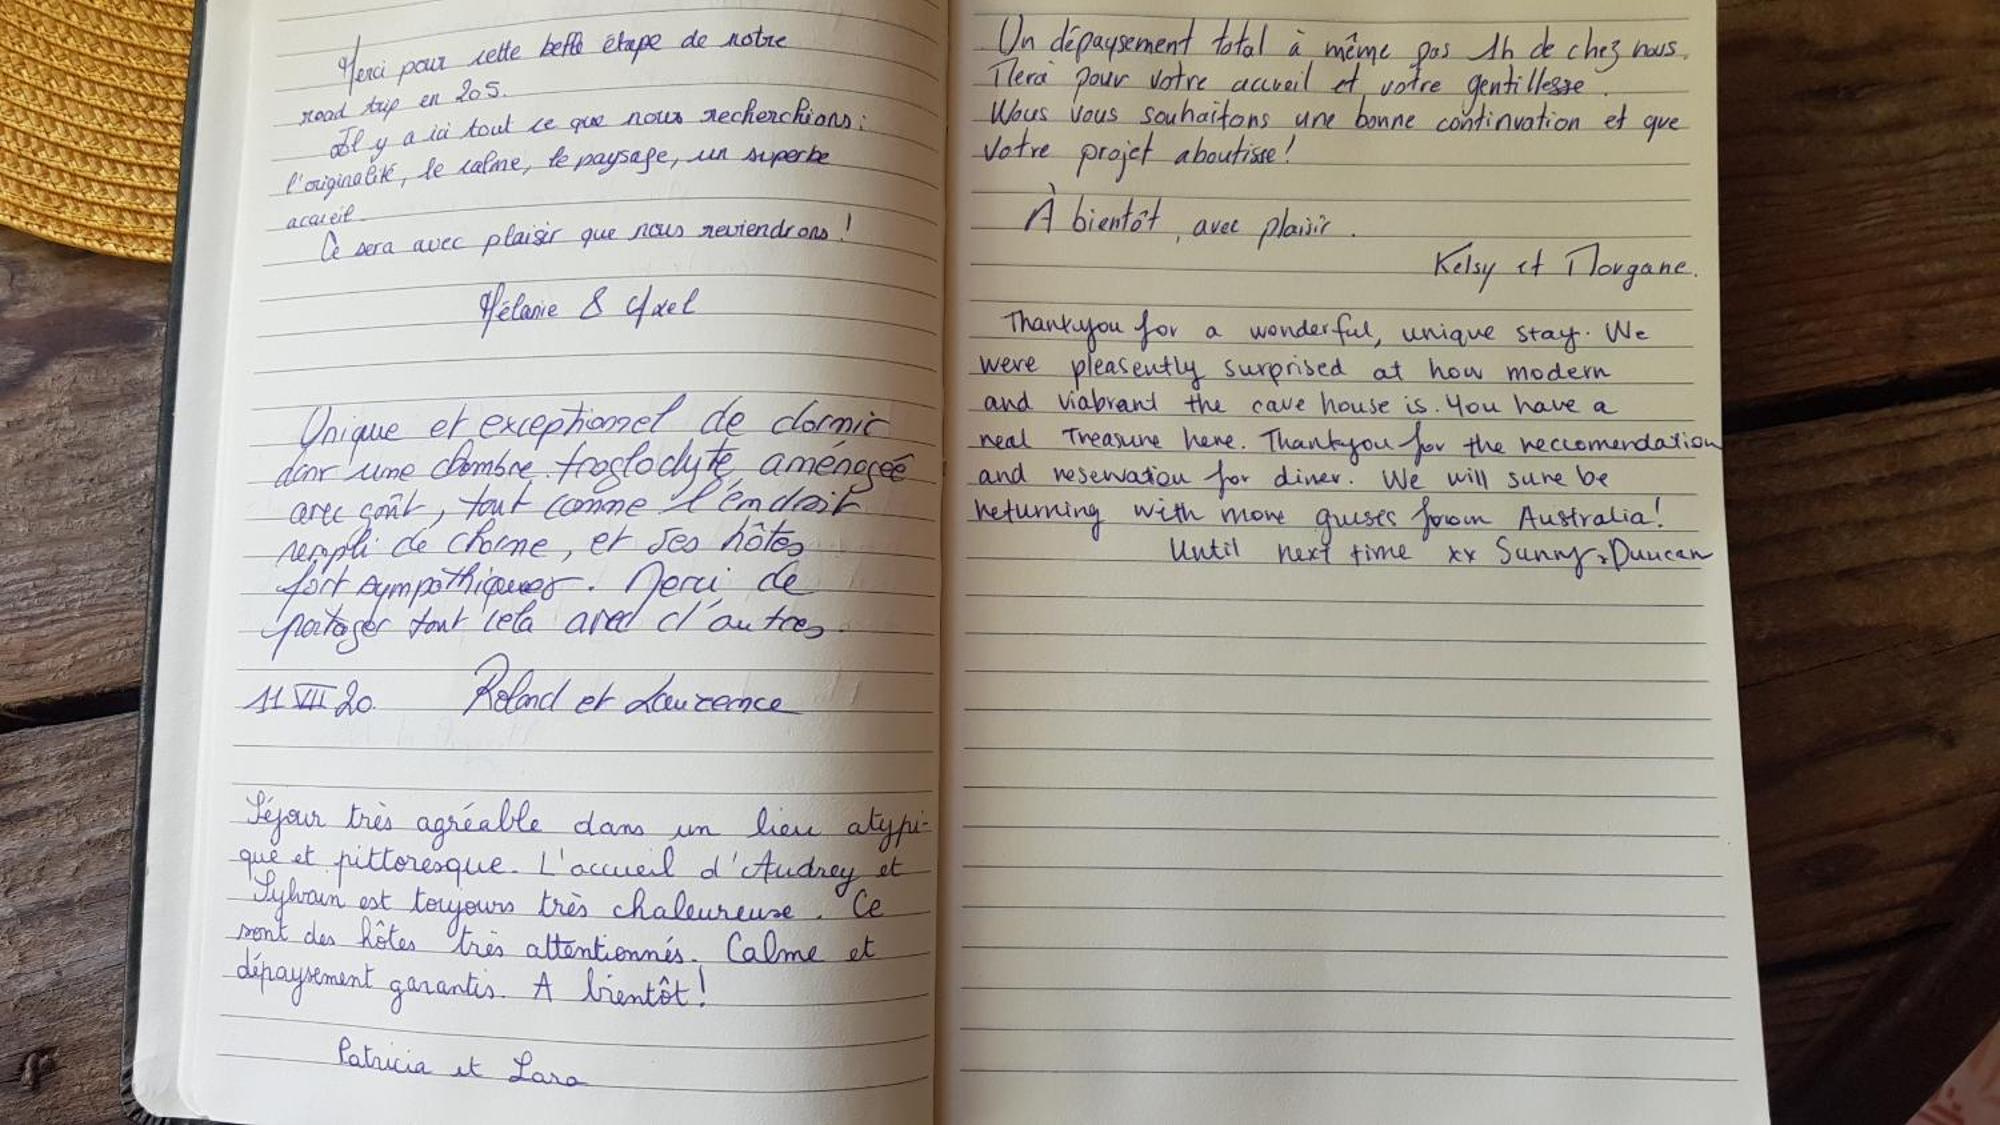 Merci pour cette belle étape de notre
road trip en 205.
Il y a ici tout ce que nous recherchions :
l'originalité, le calme, le paysage, un superbe
accueil.
Ce sera avec plaisir que nous reviendrons !
Mélanie & Axel
Unique et exceptionnel de dormir
dans une chambre troglodyte aménagée
avec goût, tout comme l'endroit
rempli de charme, et ses hôtes
fort sympathiques. Merci de
partager tout cela avec d'autres.
11 VII 20. Roland et Laurence
Séjour très agréable dans un lieu atypi-
que et pittoresque. L'accueil d'Audrey et
Sylvain est toujours très chaleureuse. Ce
sont des hôtes très attentionnés. Calme et
dépaysement garantis. A bientôt !
Patricia et Lara
Un dépaysement total à même pas 1h de chez nous.
Merci pour votre accueil et votre gentillesse.
Nous vous souhaitons une bonne continuation et que
votre projet aboutisse !
À bientôt, avec plaisir.
Kelsy et Morgane.
Thankyou for a wonderful, unique stay. We
were pleasently surprised at how modern
and viabrant the cave house is. You have a
real Treasure here. Thankyou for the reccomendation
and reservation for diner. We will sure be
returning with more guests from Australia!
Until next time xx Sunny & Duncan